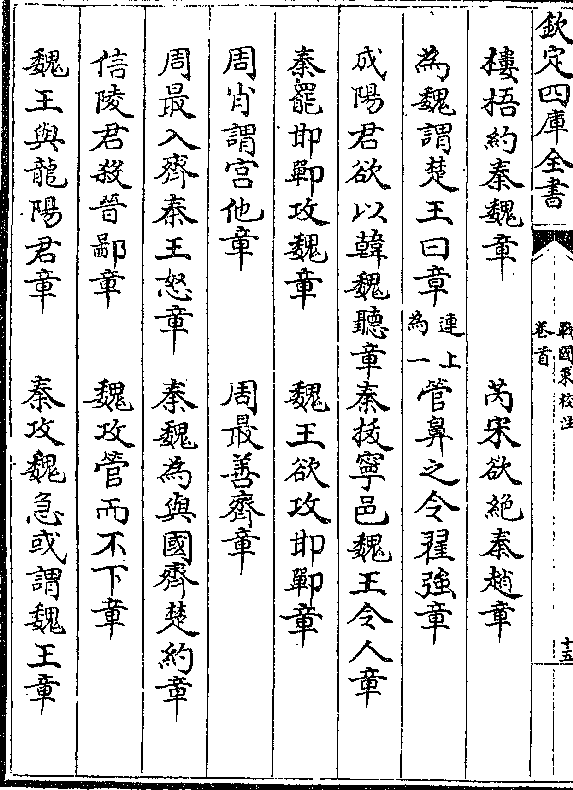 欽定四庫全書
戰國策校注
卷首
十五
樓梧約秦魏章　芮宋欲絶秦趙章
為魏謂楚王曰章連上為一　管鼻之令翟強章
成陽君欲以韓魏聽章　秦拔寧邑魏王令人章
秦罷邯鄲攻魏章　魏王欲攻邯鄲章
周肖謂宫他章　周最善齊章
周最入齊秦王怒章　秦魏為與國齊楚約章
信陵君殺晉鄙章　魏攻管而不下章
魏王與龍陽君章　秦攻魏急或謂魏王章